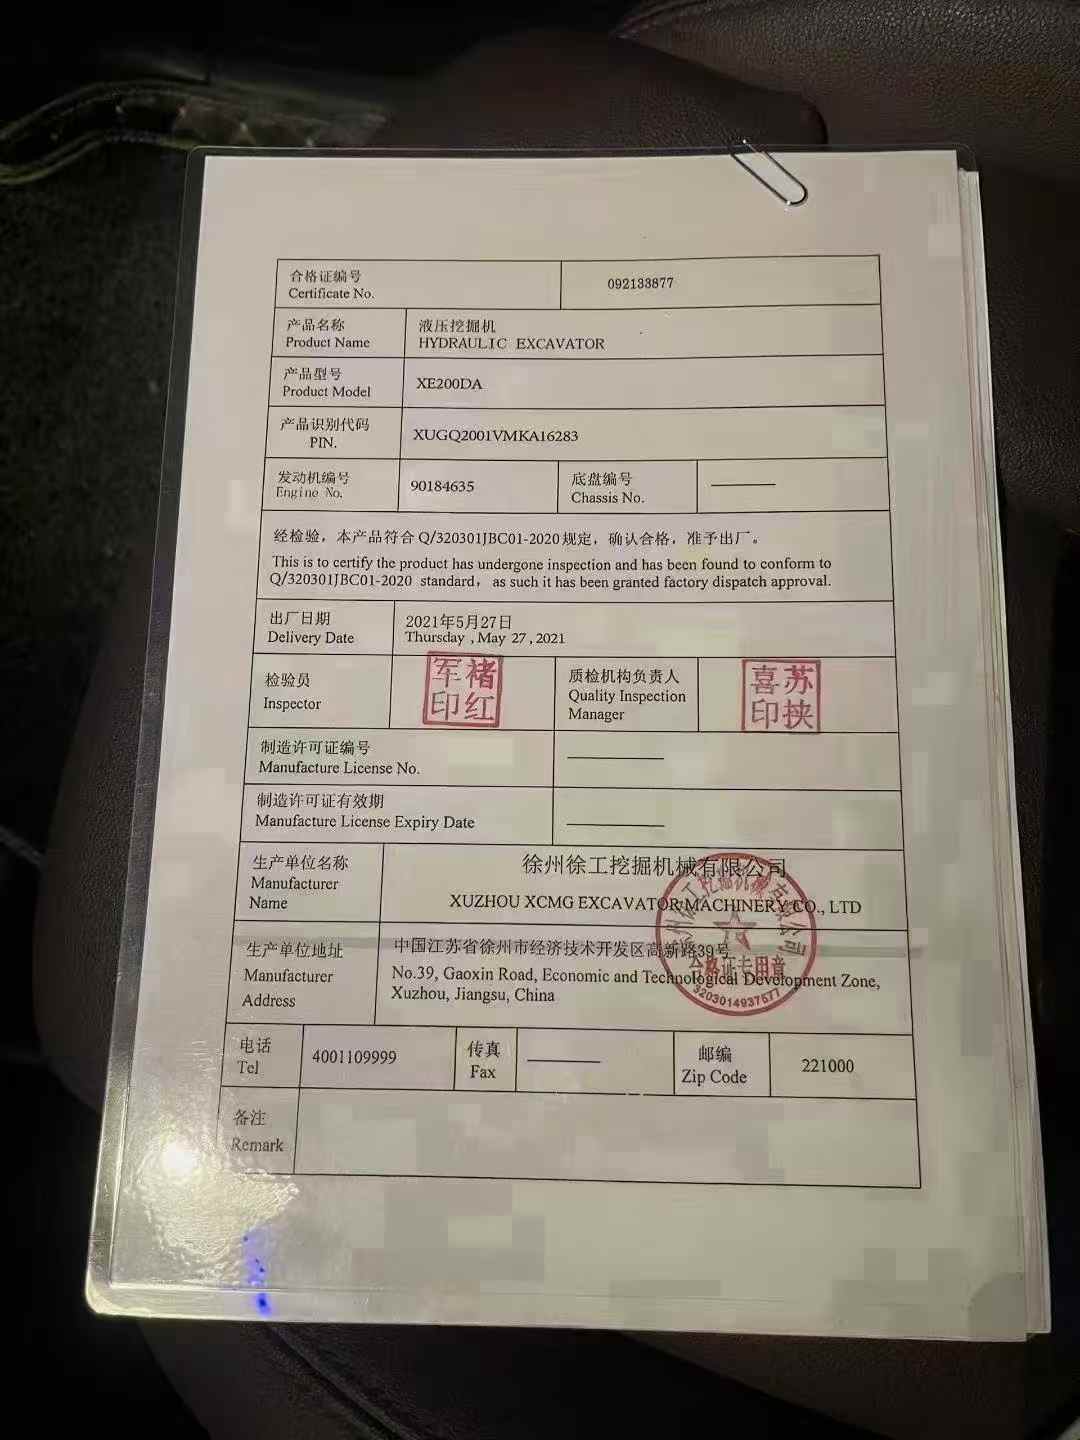 合格证编号
Certificate No.
092133877
产品名称
Product Name
液压挖掘机
HYDRAULIC EXCAVATOR
产品型号
Product Model
XE200DA
产品识别代码
PIN.
XUGQ2001VMKA16283
发动机编号
Engine No.
90184635
底盘编号
Chassis No.
经检验，本产品符合Q/320301JBC01-2020规定，确认合格，准予出厂。
This is to certify the product has undergone inspection and has been found to conform to
Q/320301JBC01-2020 standard, as such it has been granted factory dispatch approval.
出厂日期
Delivery Date
2021年5月27日
Thursday , May 27 , 2021
检验员
Inspector
军褚
印红
质检机构负责人
Quality Inspection
Manager
喜苏
印挟
制造许可证编号
Manufacture License No.
制造许可证有效期
Manufacture License Expiry Date
生产单位名称
Manufacturer
Name
徐州徐工挖掘机械有限公司
XUZHOU XCMG EXCAVATOR MACHINERY CO., LTD
生产单位地址
Manufacturer
Address
中国江苏省徐州市经济技术开发区高新路39号
No.39, Gaoxin Road, Economic and Technological Development Zone,
Xuzhou, Jiangsu, China
徐州徐工挖掘机械有限公司
合格证专用章
3203014937577
电话
Tel
4001109999
传真
Fax
邮编
Zip Code
221000
备注
Remark